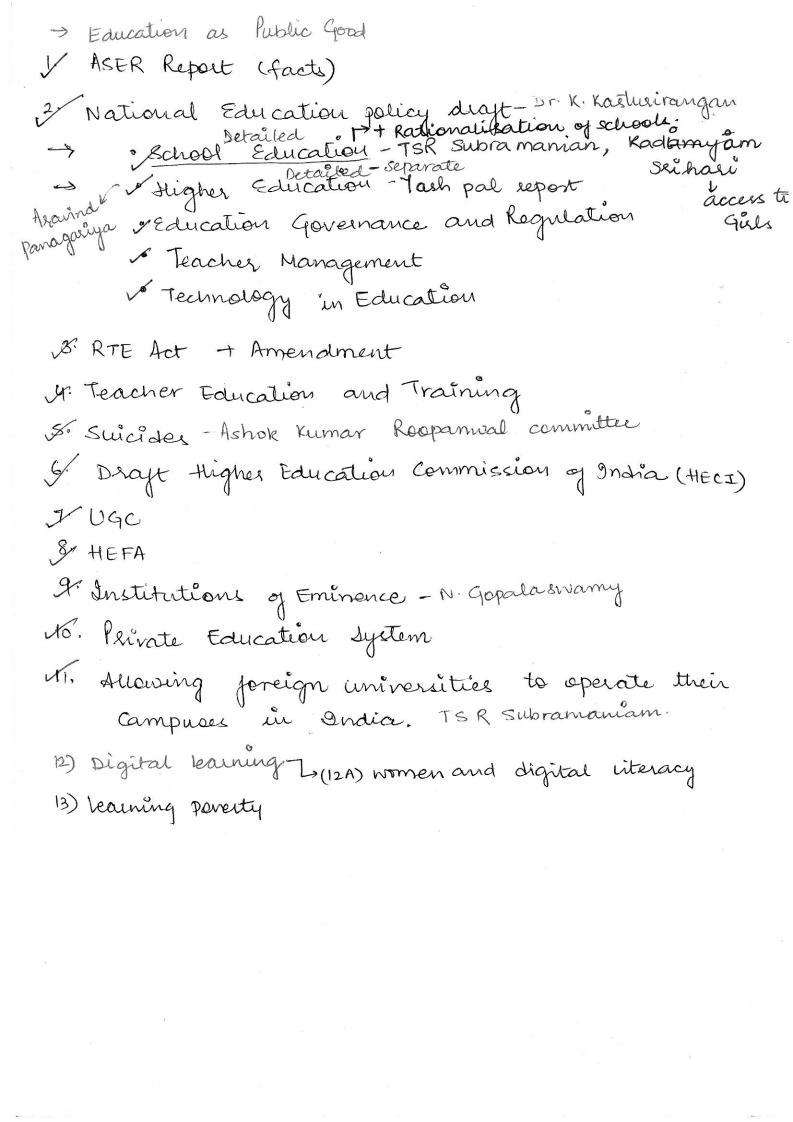 → Education as Public Good
1) ASER Report (facts)
2. National Education policy draft - Dr. K. Kasturirangan
Detailed ↱ + Rationalization of schools.
→ • School Education - TSR Subramanian, Kadiamyam Srihari
↓ access to Girls
Detailed - separate
→ • Higher Education - Yash pal report
Aravind Panagariya
• Education Governance and Regulation
• Teacher Management
• Technology in Education
3. RTE Act + Amendment
4. Teacher Education and Training
5. Suicides - Ashok Kumar Roopanwal committee
6) Draft Higher Education Commission of India (HECI)
7) UGC
8) HEFA
9. Institutions of Eminence - N. Gopalaswamy
10. Private Education System
11. Allowing foreign universities to operate their
campuses in India. TSR Subramaniam.
12) Digital learning ↳ (12A) women and digital literacy
13) learning poverty